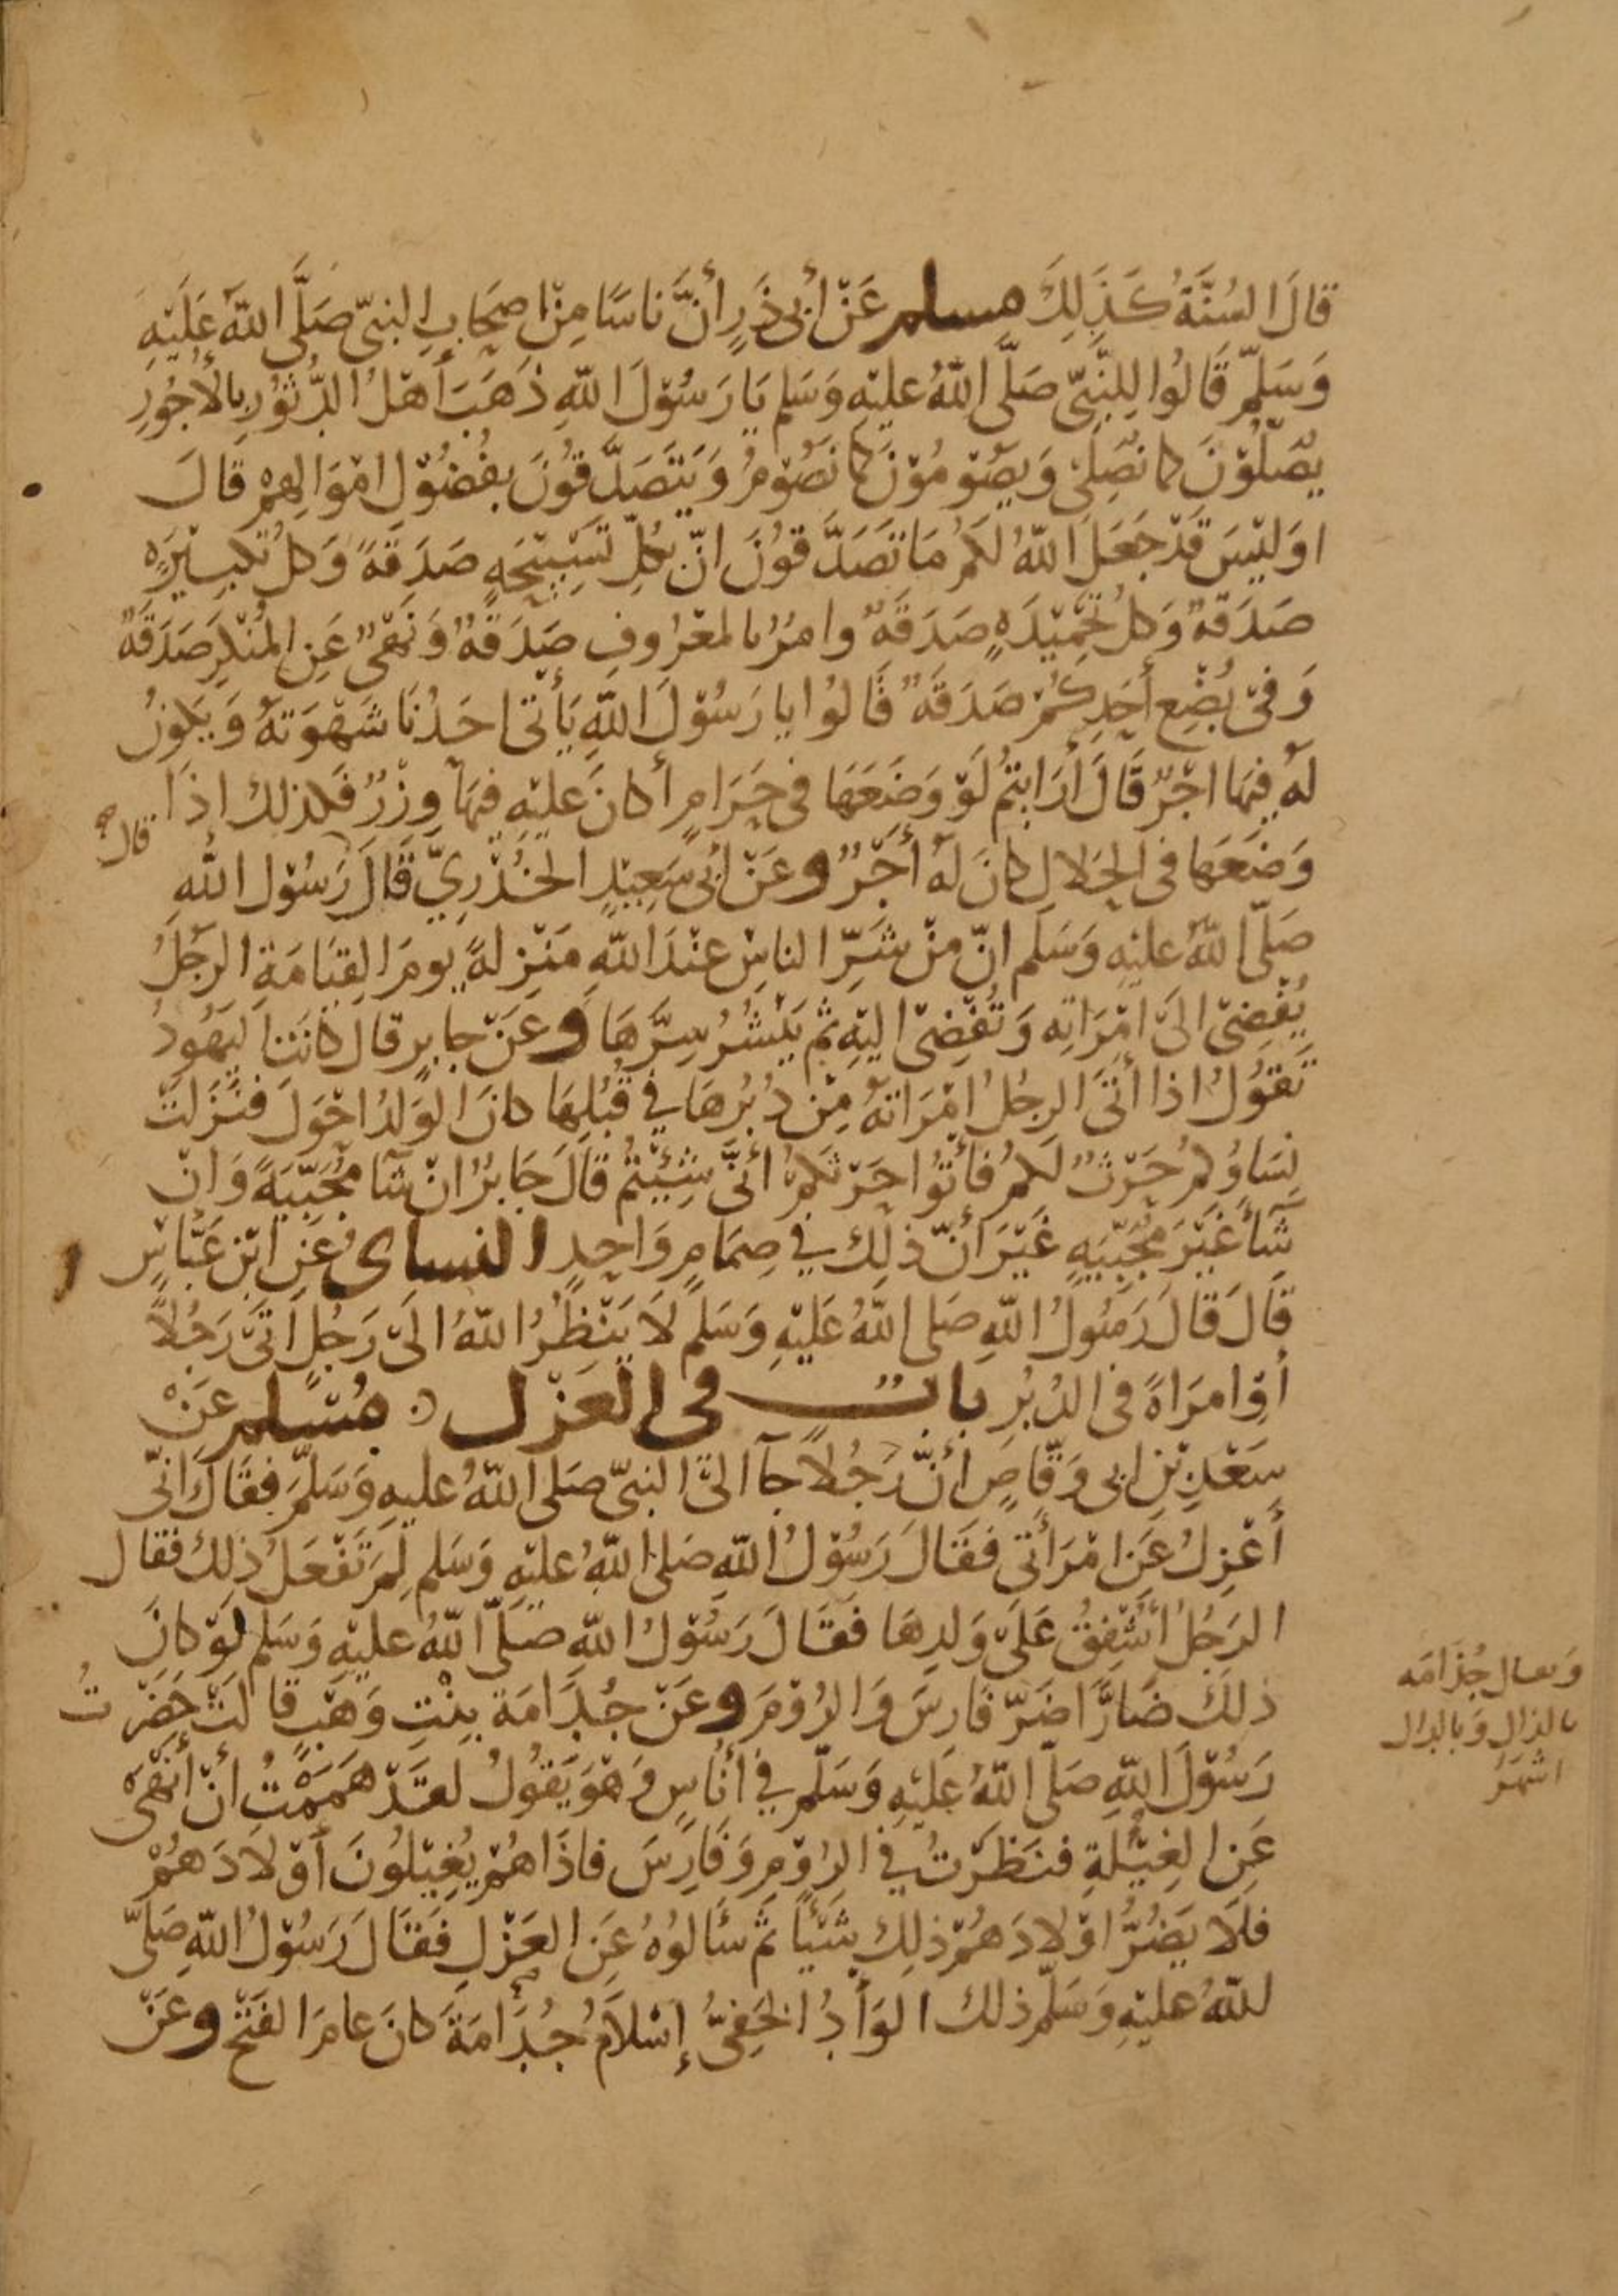 قَالَ السُنَّةُ كَذَلِكَ مسلم عَنْ أبى ذَرٍ أنَّ نَاسًا مِنْ اصحَابِ النبىّ صَلَّى اللّهُ عَلَيْهِ
وَسَلّمَ قَالُوا لِلنَّبىّ صَلَّى اللّهُ عليْهِ وَسَلم يَا رَسُوْلَ اللّهِ ذَهَبَ أهْلُ الدُّثوْرِ بالأُجُوْرِ
يُصَلّوْنَ كما نُصَلِّى وَيَصُوْمُوْنَ كما نَصُوْمُ وَيَتَصَدَّقوُنَ بفُضُوْلِ امْوَالِهِمْ قَالَ
اوَليْسَ قَدْ جَعَلَ اللّهُ لكمُ مَا تَصَدَّقوُنَ انّ بكُلِّ تَسْبِيْحَةٍ صَدَقَةً وَكلُ تكبِيْرَةٍ
صَدَقةٌ وَكلُ تَحْمِيْدَةٍ صَدَقَةٌ وامرٌ بالمعْرُوفِ صَدَقَةٌ وَنَهْىٌ عَنِ المُنْكَرِ صَدَقَةٌ
وَفىْ بُضْعِ أَحَدِكُمْ صَدَقَةٌ قَالُوا يا رَسُوْلَ اللّهِ يَأتى احَدُنَا شَهْوَتَهُ وَيَكونُ
لَهُ فِيهَا اجْرٌ قَالَ أرَايتمُ لَوْ وَضَعَهَا فى حَرَامٍ أكانَ عليْهِ فيهَا وِزْرٌ فكذلك اذَا
وَضَعَهَا فى الحَلالِ كانَ لَهُ أجْرٌ وعَنْ أبى سَعِيْدٍ الخُدْرِيّ قَالَ رَسُوْل اللّه
قال صح
صَلّى اللهُ عليْهِ وَسَلم انّ مِنْ شَرِّ الناسِ عنْدَ اللّهِ مَنْزِلةً يومَ القِيَامَةِ الرَجُلُ
يُفْضِىْ الىَ امْرَاتِهِ وَتُفْضِىْ اليْهِ ثم يَنْشُرُ سِرَّهَا وعَنْ جابرٍ قال كانَتْ اليَهُودُ
تَقوُلُ اذا أتَى الرجُلُ امْرَاتهُ مِنْ دُبُرهَا في قُبُلِهَا كانَ الوَلدُ احْوَلَ فنَزَلتْ
نِسَاوُكمُ حَرْثٌ لَكمُ فأتُوا حَرْثكمُ أنَّى شِئْتمُ قَالَ جَابرٌ انْ شآ مُجَبِّيَةً وَانْ
شَآ غَيْرَ مُجَبِّيَةٍ غَيْرَ أنّ ذلِك فِي صِمَامٍ وَاحِدٍ النساىُ عَنِ ابْنِ عَبَّاسٍ
قَالَ قَالَ رَسُولُ اللّهِ صَلى اللّهُ عَلَيْهِ وَسَلم لاَ يَنْظُرُ اللّهُ الَىْ رَجُلٍ أتَى رَجُلاً
أوِ امرَاةً فى الدُبُرِ بابٌ فى العَزْلِ مُسْلم عَنْ
سَعْدِ بْنِ ابى وَقّاصٍ أنّ رَجُلاً جآ الىَ النبىّ صَلى اللّهُ عليهِ وَسَلّمَ فقَالَ انّى
أعْزِلُ عَنِ امْرَأتى فقَالَ رَسُوْلُ اللّهِ صَلى اللّهُ عليْهِ وَسَلم لِمَ تَفْعَلُ ذلِك فقال
الرَجُلُ اشْفِقُ عَلَىْ وَلدِهَا فَقَالَ رَسُوْلُ اللّهِ صَلّى اللّهُ عليْهِ وَسَلم لَوْ كانَ
ذلكَ ضَارًّا ضَرّ فَارِسَ وَالرُوْمَ وعَنْ جُدَامَةَ بِنْتِ وَهْبٍ قالَتْ حَضَرْتُ
رَسُوْلَ اللّهِ صَلّى اللّهُ عَلَيْهِ وَسَلّم في أنَاسٍ وَهْوَ يَقوُلُ لقَدْ هَمَمْتُ أنْ أنْهَى
عَنِ الغِيْلَةِ فنَظَرْتُ في الرُوْمِ وَفَارِسَ فاذَا هُمْ يُغِيْلُونَ أَوْلاَدَهُمْ
فَلاَ يَضُرُّ اوْلادَهُمْ ذلِك شَيْأً ثم سَألوُهُ عَنِ العَزْلِ فَقَالَ رَسُوْلُ اللّهِ صَلّى
اللّهُ عليْهِ وَسَلّم ذلك الوَأدُ الخَفِىُّ إسْلاَمُ جُدَامَةَ كانَ عامَ الفَتْحِ وعَنْ
وَيقال جُذَامَه
بالذال وَبالدال
اشهَرُ